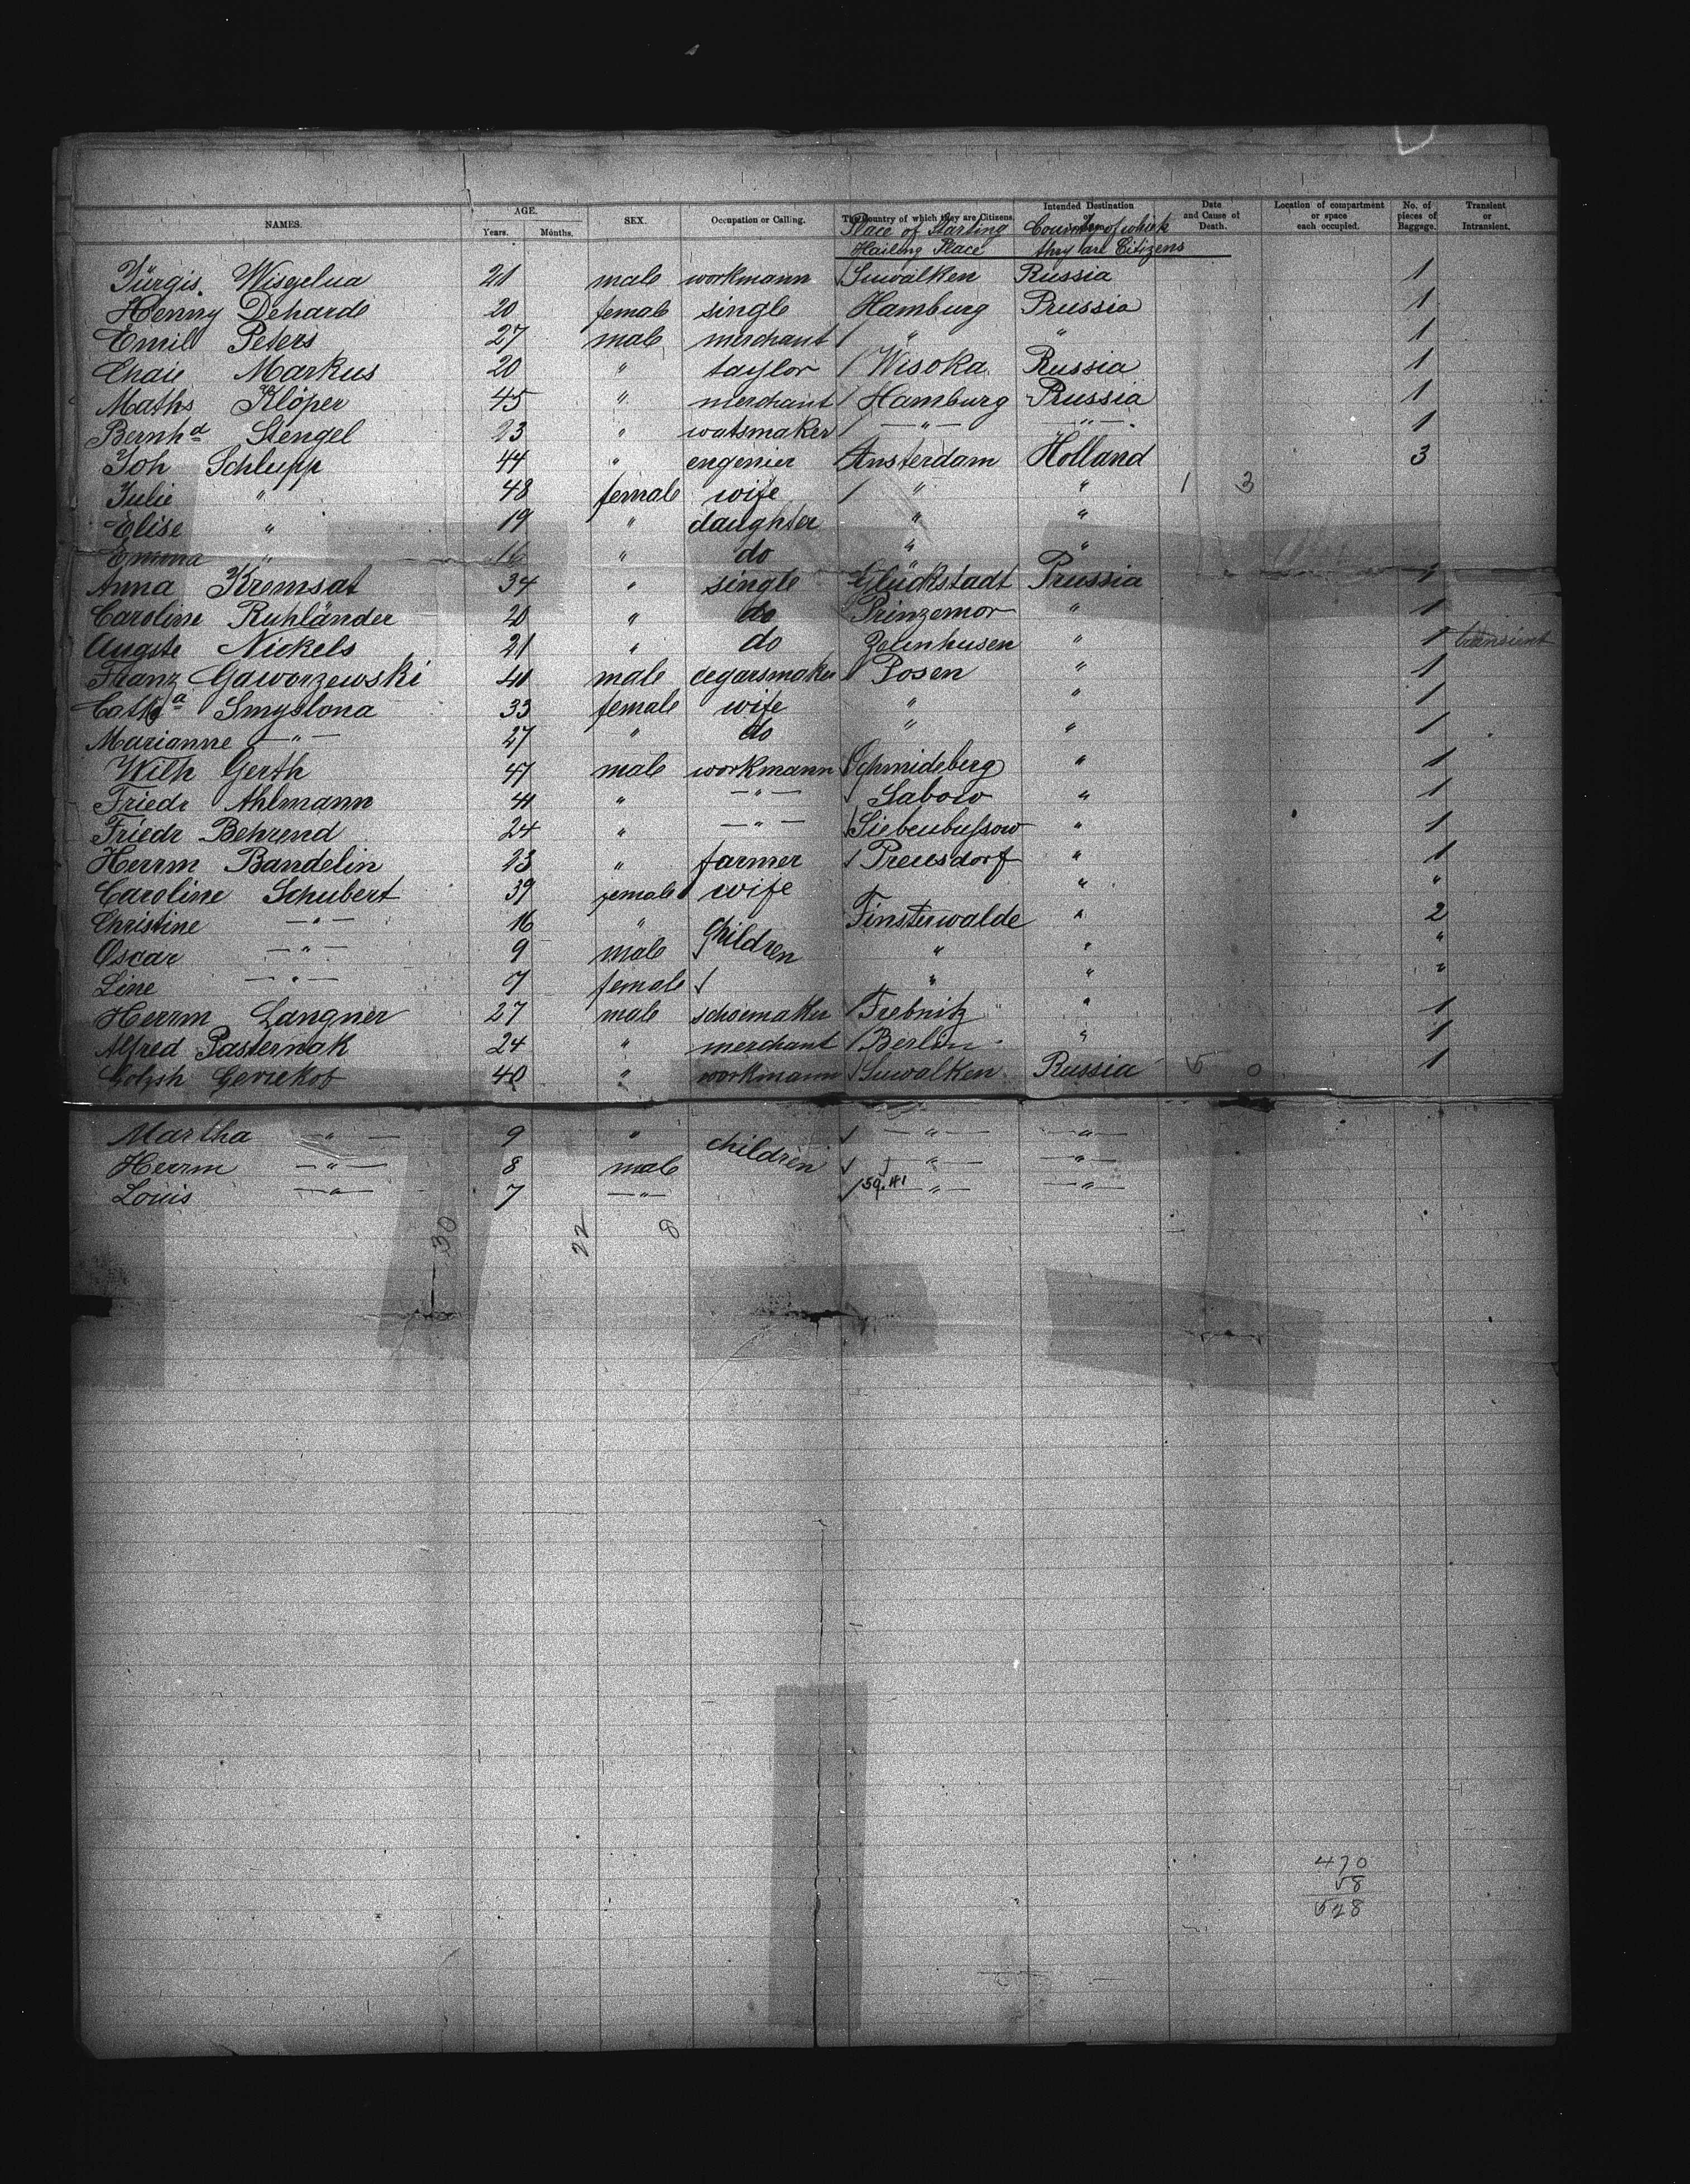 NAMES. AGE. Years. Months. SEX. Occupation or Calling. The Country of which they are Citizens. Intended Destination or Date and Cause of Death. Location of compartment or space each occupied. No. of pieces of Baggage. Transient or Intransient.
Place of Starting Country of which
Hailing Place they are Citizens
Jürgis Wisgelua 21 male workmann Suwalken Russia 1
Henny Deharde 20 female single Hamburg Prussia 1
Emil Peters 27 male merchant " " 1
Chaie Markus 20 " taylor Wisoka Russia 1
Maths Klöper 45 " merchant Hamburg Prussia 1
Bernhd Stengel 23 " watsmaker — " — — " — 1
Joh Schlupp 44 " engenier Amsterdam Holland 3
Julie " 48 female wife " " 1 3
Elise " 19 " daughter " "
Emma " 16 " do " "
Anna Kremsat 34 " single Glückstadt Prussia 1
Caroline Ruhländer 20 " do Prinzemor " 1
Auguste Nickels 21 " do " 1 transient
Franz Gaworzewski male cegarsmaker Posen " 1
Catha Smyslona 33 female wife " " 1
Marianne — " — 27 " do " " 1
Wilh Gerth 47 male workmann Schmideberg " 1
Friedr Ahlmann " — " — Sabow " 1
Friedr Behrend 24 " — " — " 1
Herrm Bandelin 23 " farmer Preusdorf " 1
Caroline Schubert 39 female wife " "
Christine — " — 16 " Children Finsterwalde " 2
Oscar — " — 9 male " " "
Line — " — 7 female " " "
Herrm Langner 27 male schoemaker Trebnitz " 1
Alfred Pasternak 24 " merchant Berlin " 1
40 " workmann Suwalken Russia 5 0 1
Martha — " — 9 " children — " — — " —
Herrm — " — 8 male — " — — " —
Louis — " — 7 — " — — " — — " —
30 22 8
470
58
528